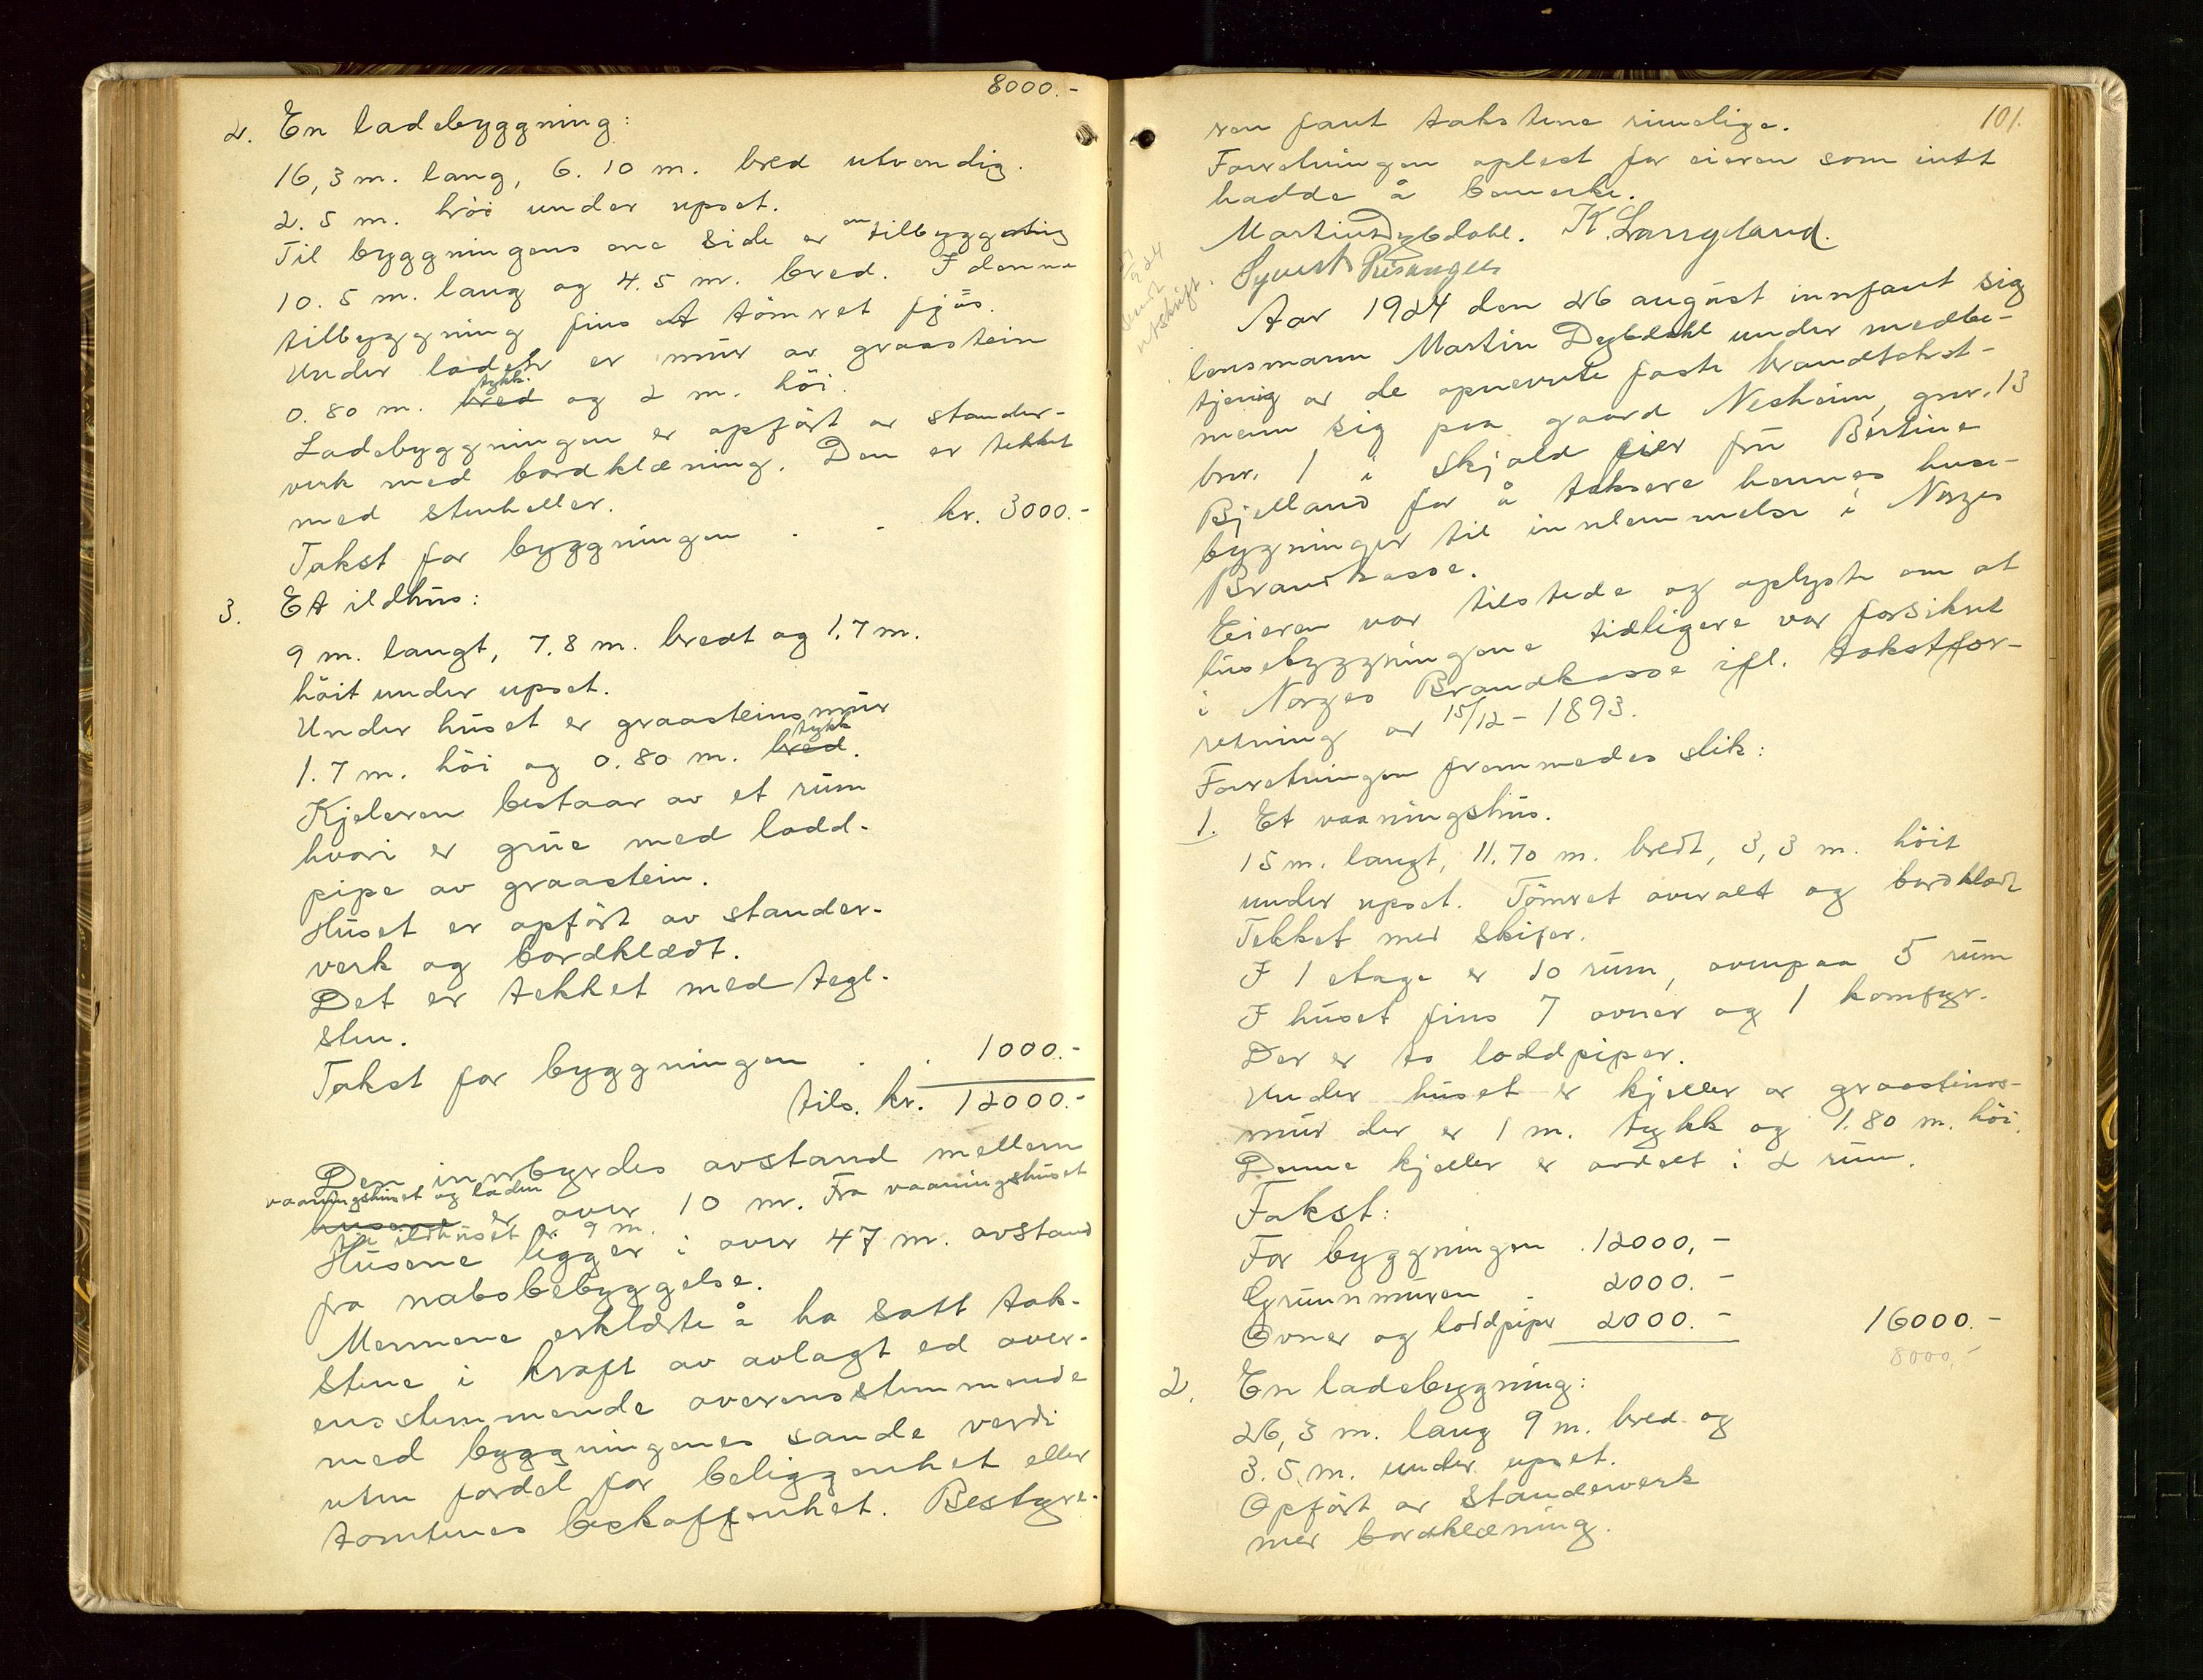 8000.-
2. En ladebyggning:
16,3 m. lang, 6.10 m. bred utvendig.
2.5 m. höi under upset.
Til byggningens ene side er en tilbyggning
10.5 m. lang og 4.5 m. bred. I denne
tilbyggning fins et tömret fjös.
Under laden er mur av graastein
0.80 m. bred tykk. og 2 m. höi.
Ladebyggningen er opfört av stander-
verk med bordklæning. Den er tekket
med stenheller.
Takst for byggningen . - kr. 3000.-
3. Et ildhus:
9 m. langt, 7.8 m. bredt og 1.7 m.
höit under upset.
Under huset er graasteinsmur
1.7 m. höi og 0.80 m. bred tykk.
Kjeleren bestaar av et rum
hvori er grue med lodd-
pipe av graastein.
Huset er opfört av stander-
verk og bordklædt.
Det er tekket med tegl-
sten.
Takst for byggningen . . 1000.-
tils. kr. 12000.-
Den innbyrdes avstand mellem
vaaningshuset og laden
husene er over 10 m. Fra vaaningshuset
til ildhuset er 9 m.
Husene ligger i over 47 m. avstand
fra nabobebyggelse.
Mennene erklærte å ha satt tak-
stene i kraft av avlagt ed over-
ensstemmende overensstemmende
med byggningenes sande verdi
uten fordel for beliggenhet eller
tomtenes beskaffenhet. Bestyre-
101.
ren fant takstene rimelige.
Forretningen oplest for eieren som intt
hadde å bemerke.
Martin Dybdahl. K. Langeland.
Syvert
924
Sendt
utskrift.
Aar 1924 den 26 august innfant sig
lensmann Martin Dybdahl under medbe-
tjening av de opnevnte faste brandtakst-
menn sig paa gaard Nesheim, gnr. 13
bnr. 1 i Skjold eier fru Bertine
Bjelland for å taksere hennes huse-
bygninger til innlemmelse i Norges
Brandkasse.
Eieren var tilstede og oplyste om at
husebyggningene tidligere var forsikret
i Norges Brandkasse ifl. takstfor-
retning av 15/12 - 1893.
Forretningen fremmedes slik:
1. Et vaaningshus.
15 m. langt, 11.70 m. bredt, 3,3 m. höit
under upset. Tömret overalt og bordklædt
Tekket med skifer.
I 1 etage er 10 rum, ovenpaa 5 rum
I huset fins 7 ovner og 1 komfyr.
Der er to loddpiper.
Under huset er kjeller av graasteins-
mur der er 1 m. tykk og 1.80 m. höi.
Denne kjeller er avdelt i 2 rum.
Takst:
For byggningen . 12000,-
Grunnmuren - 2000.-
Ovner og loddpiper 2000.- 16000.-
8000,-
2. En ladebygning:
26,3 m. lang 9 m. bred og
3.5 m. under upset.
Opfört av standerverk
med bordklæning.